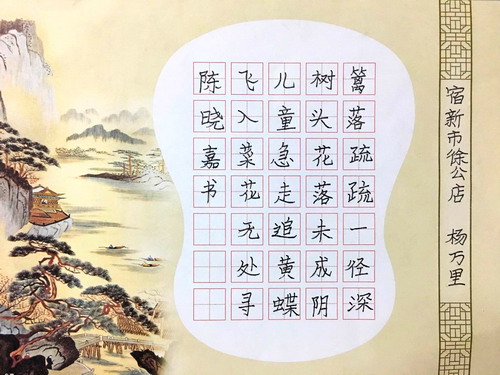 宿新市徐公店 杨万里
篱落疏疏一径深
树头花落未成阴
儿童急走追黄蝶
飞入菜花无处寻
陈晓嘉书